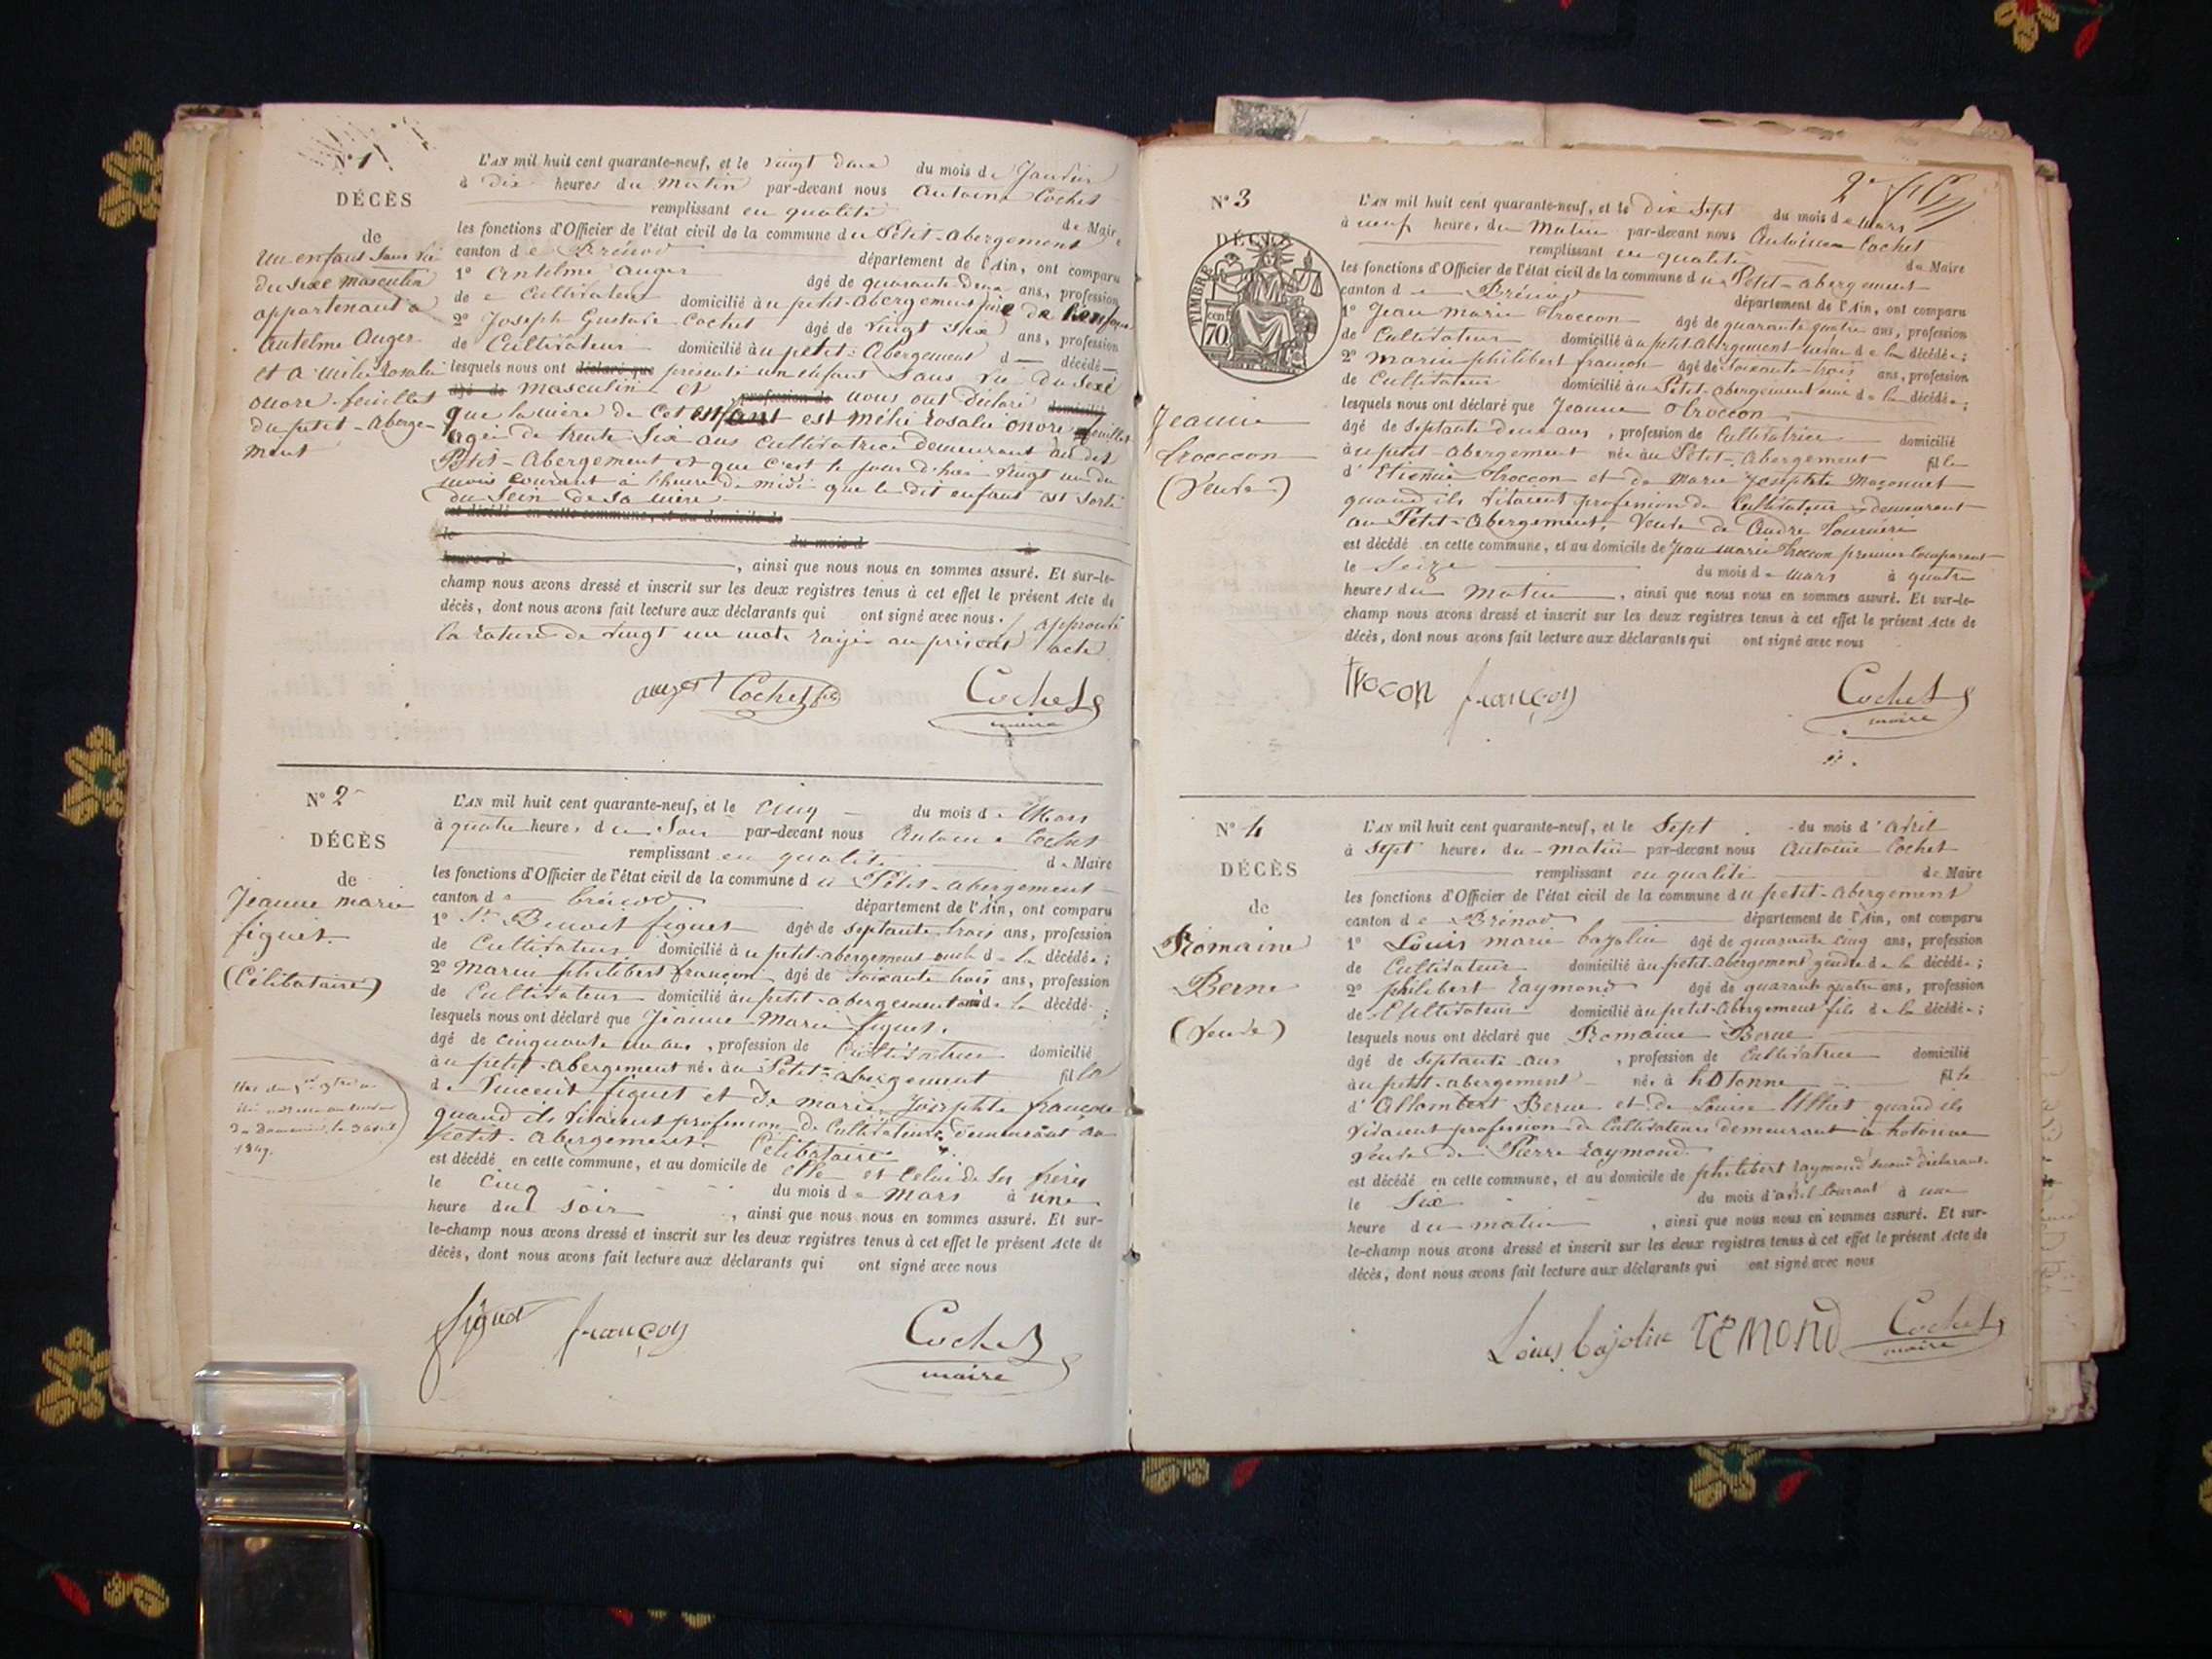 N° 1
DÉCÈS
de
Un enfant sans vie
du sexe masculin
appartenant à
Antelme Auger
et à Mélie Rosalie
onore feuillet
du petit-Aberge-
ment
L'AN mil huit cent quarante-neuf, et le vingt deux du mois de Janvier
à dix heures du Matin par-devant nous Antoine Cochet
remplissant en qualité de Maire
les fonctions d'Officier de l'état civil de la commune du Petit-Abergement
canton de Brénod département de l'Ain, ont comparu
1° Antelme Auger âgé de quarante deux ans, profession
de Cultivateur domicilié au petit-Abergement père de l'enfant
2° Joseph Gustave Cochet âgé de vingt six ans, profession
de Cultivateur domicilié au petit-Abergement d décédé
lesquels nous ont déclaré que présenté un enfant sans vie du sexe
âgé de masculin et profession de nous ont déclaré domicilié
que la mère de cet enfant est Mélie Rosalie onore feuillet
agée de trente six ans cultivatrice demeurant au dit
Petit-Abergement et que c'est le jour d'hier vingt un du
mois courant à l'heure de midi que le dit enfant est sorti
du sein de sa mère
est décédé en cette commune, et au domicile de
le du mois d à
heure d , ainsi que nous nous en sommes assuré. Et sur-le-
champ nous avons dressé et inscrit sur les deux registres tenus à cet effet le présent Acte de
décès, dont nous avons fait lecture aux déclarants qui ont signé avec nous. approuvé
la rature de vingt un mots rayés au présent acte
auger Cochet fils Cochet
maire
N° 2
DÉCÈS
de
Jeanne marie
figuet.
(Célibataire)
1849.
L'AN mil huit cent quarante-neuf, et le cinq du mois de Mars
à quatre heures du Soir par-devant nous Antoine Cochet
remplissant en qualité de Maire
les fonctions d'Officier de l'état civil de la commune du Petit-Abergement
canton de brénod département de l'Ain, ont comparu
1° Benoit figuet âgé de septante trois ans, profession
de Cultivateur domicilié au petit-abergement oncle de la décédée;
2° Marin philibert françon âgé de soixante trois ans, profession
de Cultivateur domicilié au petit-abergement ami de la décédée;
lesquels nous ont déclaré que Jeanne Marie figuet.
âgé de cinquante un ans, profession de Cultivatrice domicilié
au petit-abergement née au Petit-abergement fille
de Vincent figuet et de marie Josephte françon
quand ils vivaient profession de Cultivateurs demeurant au
petit-abergement Célibataire
est décédé en cette commune, et au domicile de elle et celui de ses frères
le cinq du mois de Mars à une
heure du soir , ainsi que nous nous en sommes assuré. Et sur-
le-champ nous avons dressé et inscrit sur les deux registres tenus à cet effet le présent Acte de
décès, dont nous avons fait lecture aux déclarants qui ont signé avec nous
figuet françon Cochet
maire
N° 3
DÉCÈS
TIMBRE
70 cen
Jeanne
Troccon
(Veuve)
L'AN mil huit cent quarante-neuf, et le dix Sept du mois de mars
à neuf heures du Matin par-devant nous Antoine Cochet
remplissant en qualité de Maire
les fonctions d'Officier de l'état civil de la commune du Petit-abergement
canton de Brénod département de l'Ain, ont comparu
1° Jean Marie Troccon âgé de quarante quatre ans, profession
de Cultivateur domicilié au petit-abergement neveu de la décédée;
2° Marin philibert françon âgé de soixante-trois ans, profession
de Cultivateur domicilié au Petit-abergement ami de la décédée;
lesquels nous ont déclaré que Jeanne Troccon
âgé de septante deux ans, profession de Cultivatrice domicilié
au petit-abergement née au Petit-abergement fille
d'Etienne Troccon et de Marie Josephte Maçonnet
quand ils vivaient profession de Cultivateurs demeurant
au Petit-Abergement, Veuve de André
est décédé en cette commune, et au domicile de Jean marie Troccon premier Comparant
le Seize du mois de Mars à quatre
heures du matin , ainsi que nous nous en sommes assuré. Et sur-le-
champ nous avons dressé et inscrit sur les deux registres tenus à cet effet le présent Acte de
décès, dont nous avons fait lecture aux déclarants qui ont signé avec nous
trocon françon Cochet
maire
N° 4
DÉCÈS
de
Romaine
Berne
(Veuve)
L'AN mil huit cent quarante-neuf, et le Sept du mois d'avril
à Sept heures du matin par-devant nous Antoine Cochet
remplissant en qualité de Maire
les fonctions d'Officier de l'état civil de la commune du petit-abergement
canton de Brénod département de l'Ain, ont comparu
1° Louis marie bajolin âgé de quarante cinq ans, profession
de Cultivateur domicilié au petit-abergement gendre de la décédée;
2° philibert raymond âgé de quarante quatre ans, profession
de Cultivateur domicilié au petit-abergement fils de la décédée;
lesquels nous ont déclaré que Romaine Berne
âgé de septante ans, profession de Cultivatrice domicilié
au petit-abergement née à hotonne fille
d'Allombert Berne et de Louise quand ils
vivaient profession de Cultivateurs demeurant à hotonne
veuve de Pierre raymond.
est décédé en cette commune, et au domicile de philibert raymond second déclarant.
le Six du mois d'avril Courant à une
heure du matin , ainsi que nous nous en sommes assuré. Et sur-
le-champ nous avons dressé et inscrit sur les deux registres tenus à cet effet le présent Acte de
décès, dont nous avons fait lecture aux déclarants qui ont signé avec nous
Louis bajolin rEMOND Cochet
maire